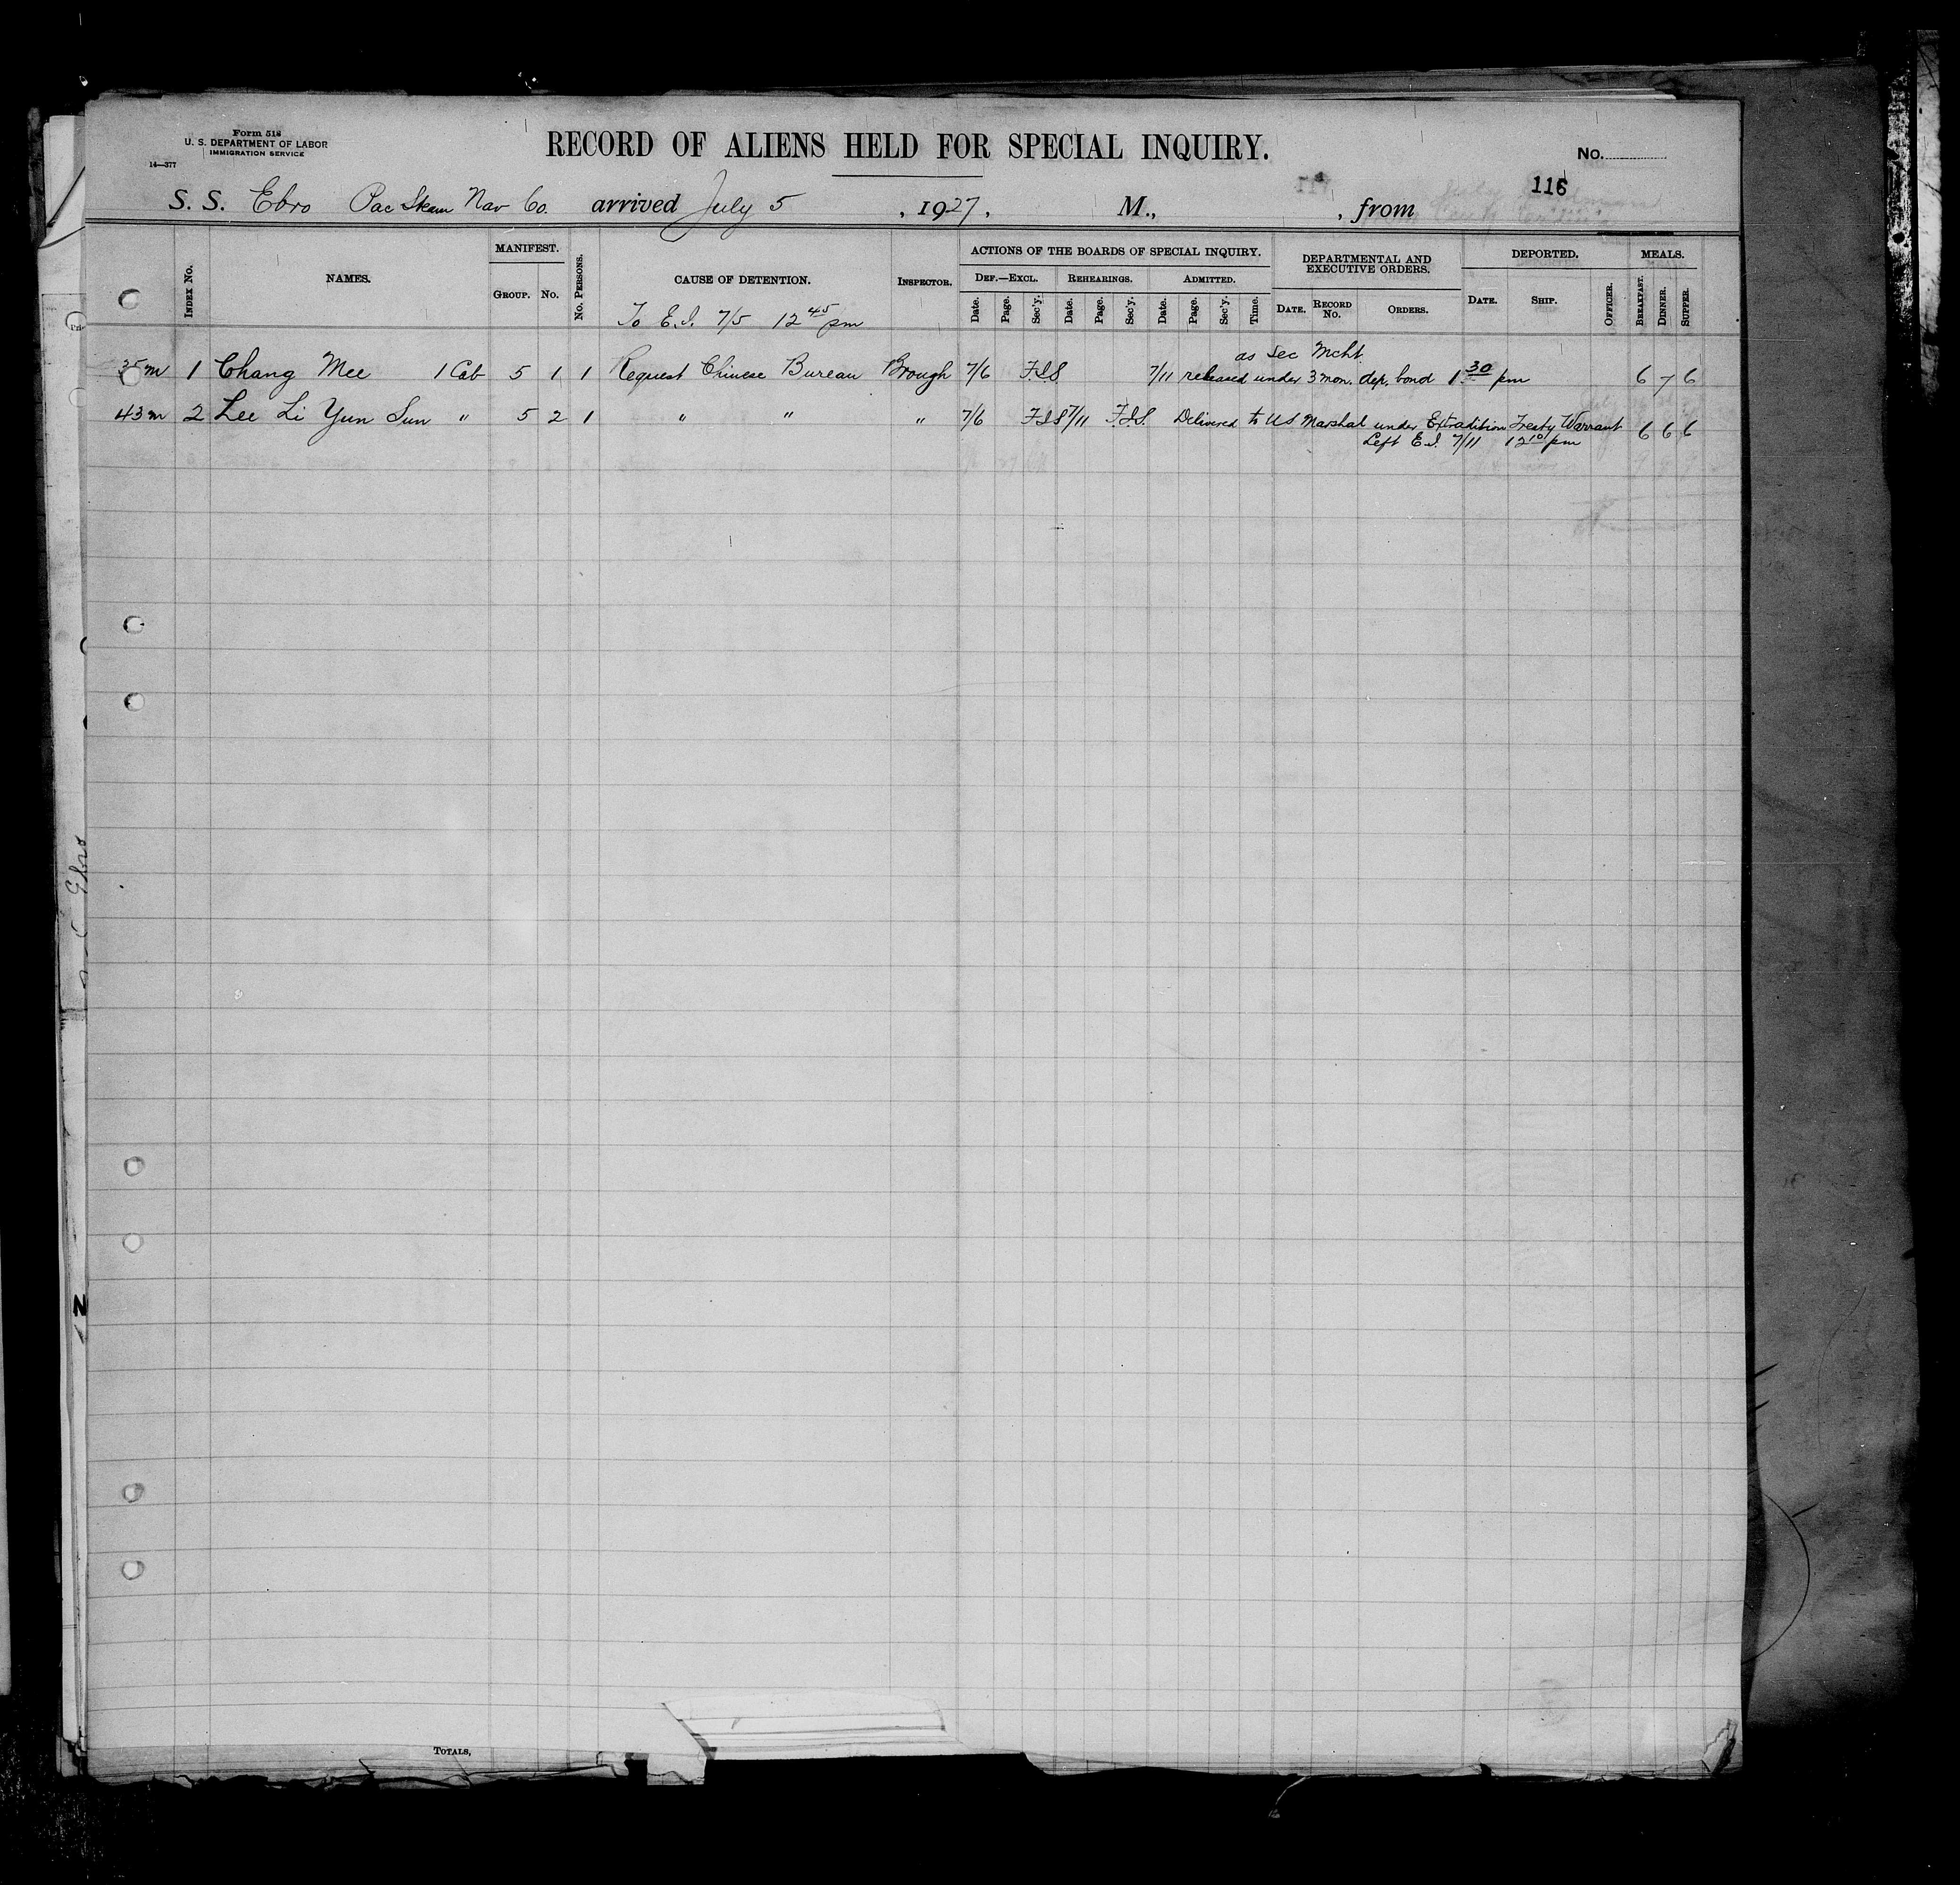 Form 518
U. S. DEPARTMENT OF LABOR
IMMIGRATION SERVICE
14—377
RECORD OF ALIENS HELD FOR SPECIAL INQUIRY.
No.
116
S. S. Ebro Pac Steam Nav Co. arrived July 5, 1927, M., , from
INDEX No.
NAMES.
MANIFEST.
GROUP. No.
No. PERSONS.
CAUSE OF DETENTION.
To E.I. 7/5 12 45 pm
INSPECTOR.
ACTIONS OF THE BOARDS OF SPECIAL INQUIRY.
DEF.—EXCL. REHEARINGS. ADMITTED.
Date. Page. Sec'y. Date. Page. Sec'y. Date. Page. Sec'y. Time.
DEPARTMENTAL AND
EXECUTIVE ORDERS.
DATE. RECORD No. ORDERS.
DEPORTED.
DATE. SHIP. OFFICER.
MEALS.
BREAKFAST. DINNER. SUPPER.
as Sec Mcht.
35 m 1 Chang Mee 1 Cab 5 1 1 Request Chinese Bureau Brough 7/6 F.I.S 7/11 released under 3 mon. dep. bond 1 30 pm 6 7 6
43 m 2 Lee Li Yun Sun " 5 2 1 " " " 7/6 F.I.S 7/11 F.I.S. Delivered to US Marshal under Extradition Treaty Warrant 6 6 6
Left E.I. 7/11 12 10 pm
Ebro
TOTALS,